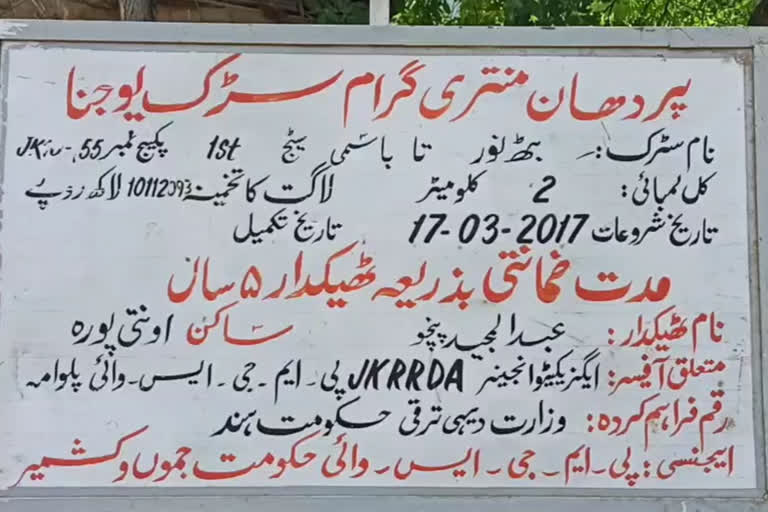 پردھان منتری گرام سڑک یوجنا
نام سٹرک: بھٹ نور تا باسمی سٹیج 1st پیکیج نمبر JK10-55
کل لمبائی: 2 کلومیٹر لاگت کا تخمینہ 10112093 لاکھ روپے
تاریخ شروعات 17-03-2017 تاریخ تکمیل
مدت ضمانتی بذریعہ ٹھیکدار ۵ سال
نام ٹھیکدار: عبدالمجید پنچو ساکن اونتی پورہ
متعلق آفیسر: ایگزیکیٹو انجینر JKRRDA پی۔ایم۔جی۔ایس۔وائی پلوامہ
رقم فراہم کردہ: وزارت دیہی ترقی حکومت ہند
ایجنسی: پی۔ایم۔جی۔ایس۔وائی حکومت جموں و کشمیر